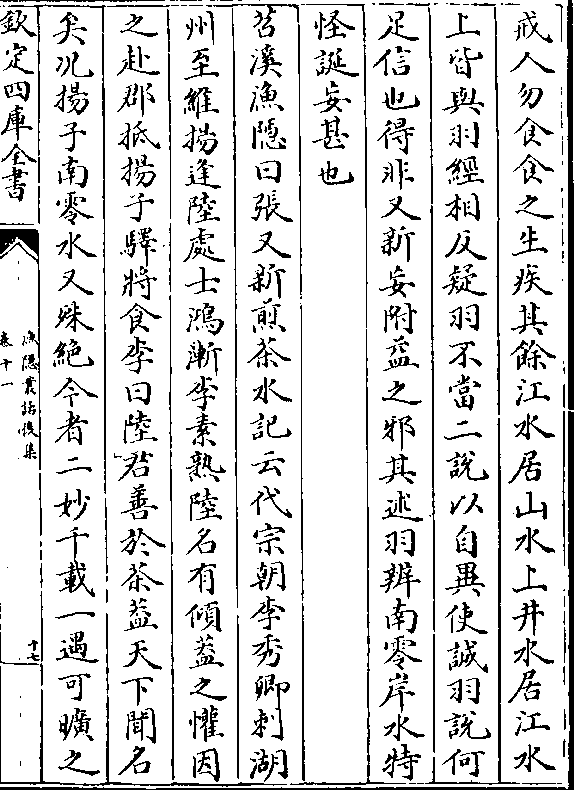 戒人勿食食之生疾其餘江水居山水上井水居江水
上皆與羽經相反疑羽不當二說以自異使誠羽說何
足信也得非又新妄附益之邪其述羽辨南零岸水特
怪誕妄甚也
苕溪漁隠曰張又新煎茶水記云代宗朝李秀卿刺湖
州至維揚逢陸處士鴻漸李素熟陸名有傾葢之懽因
之赴郡抵揚子驛將食李曰陸君善於茶葢天下聞名
矣况揚子南零水又殊絶今者二妙千載一遇可曠之
欽定四庫全書
漁隠叢話後集
卷十一
十七